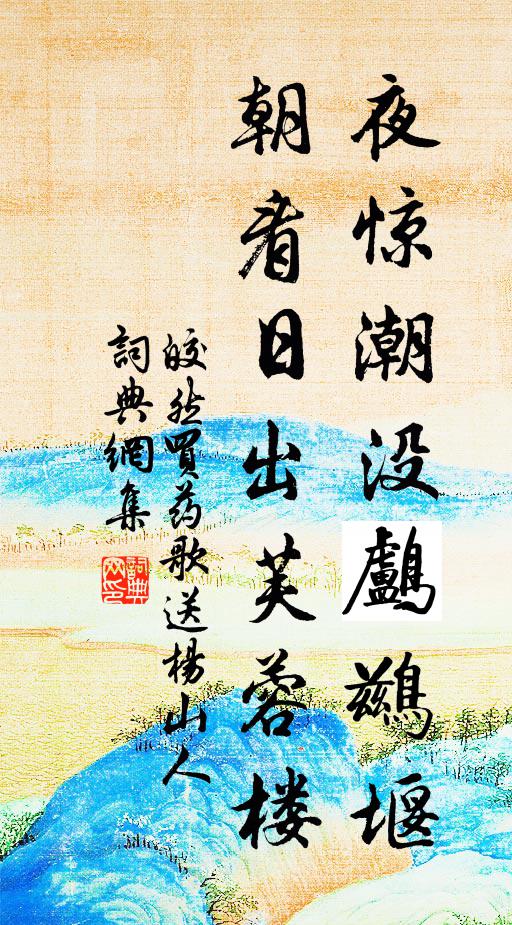 夜惊潮没鸕鷀堰
朝看日出芙蓉楼
皎然買药歌送楊山人
詞典網集
詞典网印